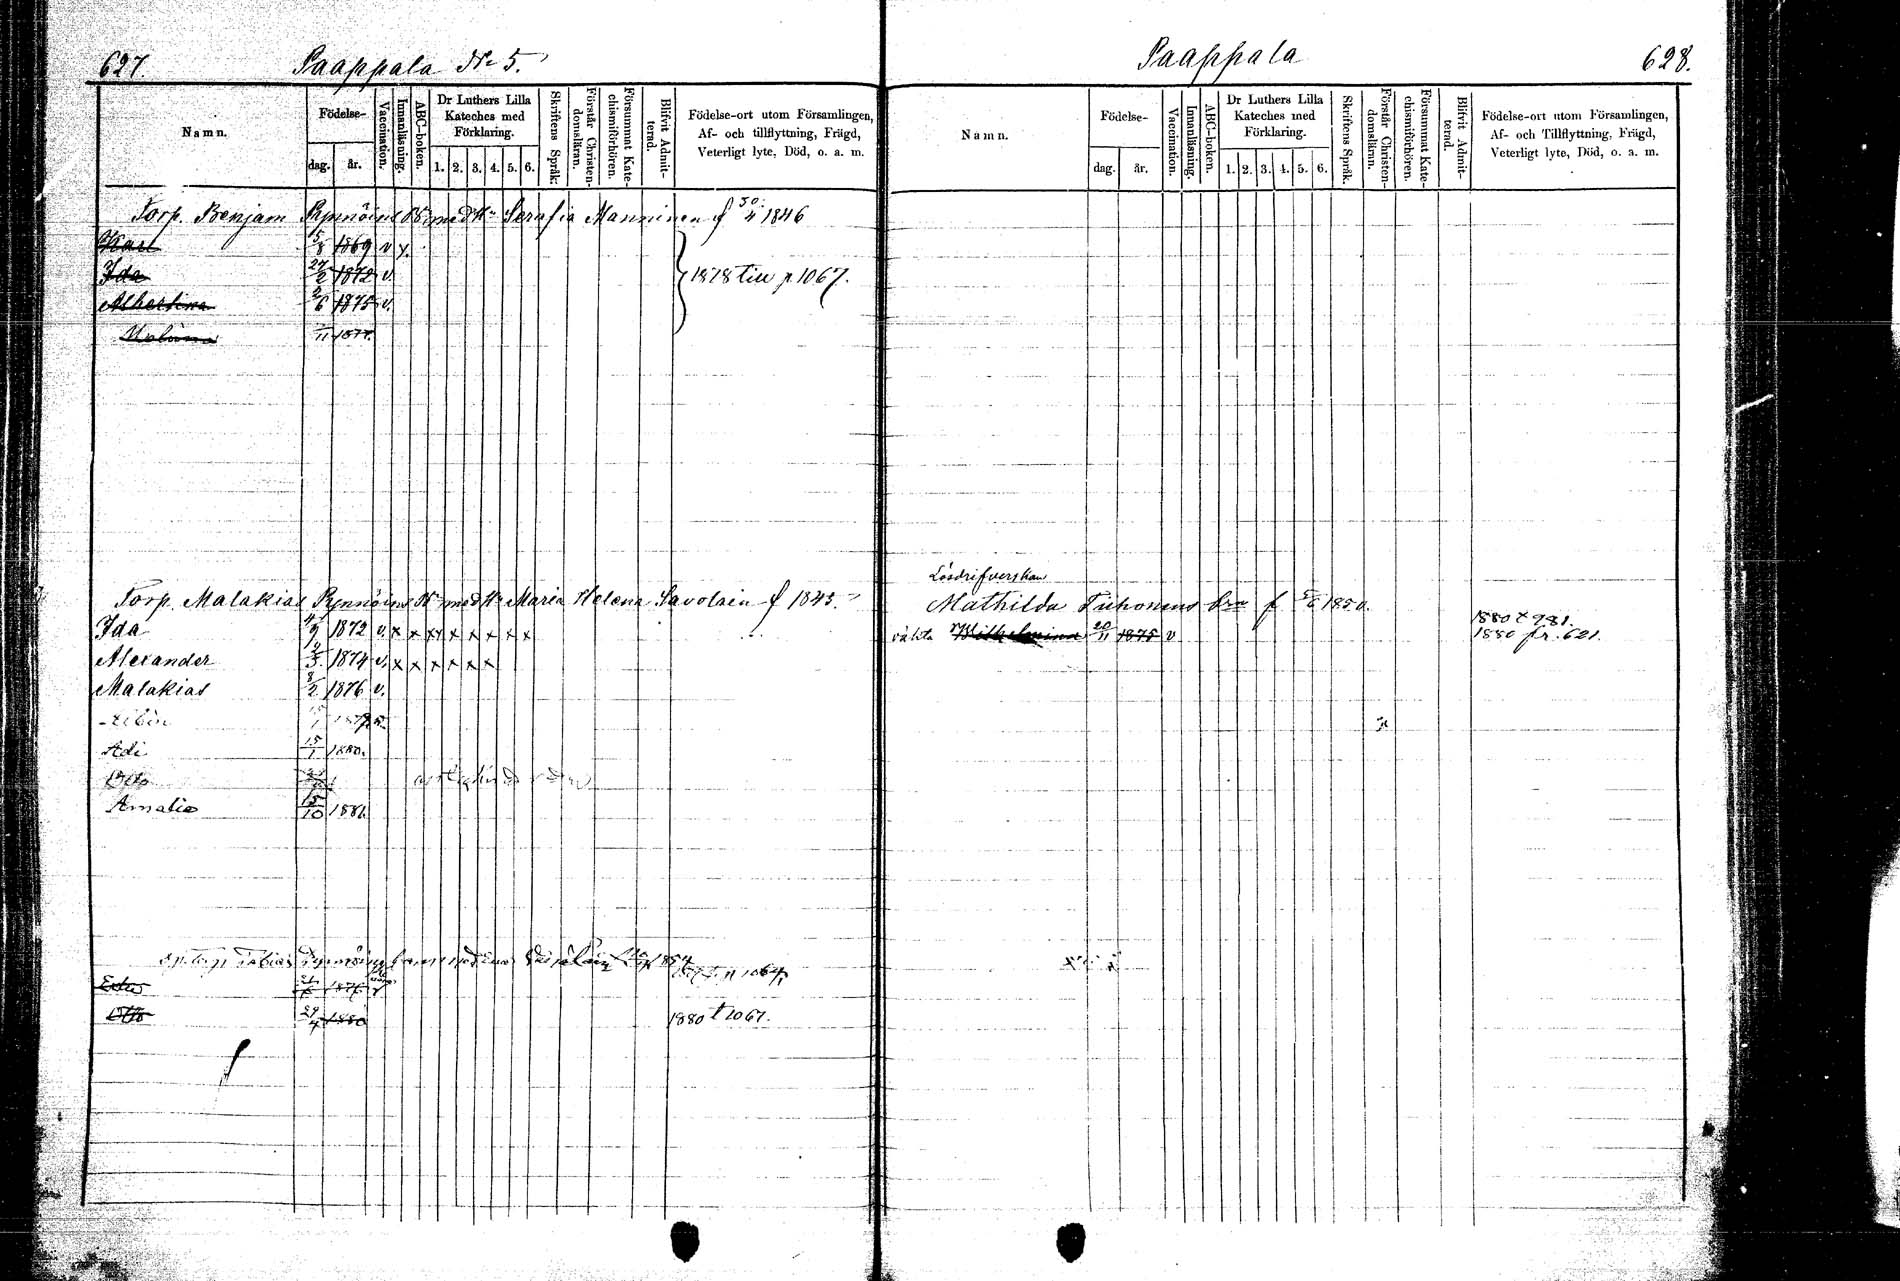 627.
Paappala No 5.
Namn.
Födelse-
dag. år.
Vaccination.
Innanläsning.
ABC-boken.
Dr Luthers Lilla Kateches med Förklaring.
1. 2. 3. 4. 5. 6.
Skriftens Språk.
Förstår Christendomsläran.
Försummat Katechismiförhören.
Blifvit Admitterad.
Födelse-ort utom Församlingen,
Af- och tillflyttning, Frägd,
Veterligt lyte, Död, o. a. m.
Torp. Benjam Rynnöins Bn med Hu Serafia Manninen f 30/4 1846
Karl 15/8 1869 v x
Ida 27/2 1872 v.
Albertina 2/6 1875 v.
1878 till p 1067.
/11 1877.
Torp. Malakias Rynnöins Bn med Hu Maria Helena Savolain f 1843.
Ida 4/9 1872 v. x x xx x x x x x
Alexander 12/3 1874 v. x x x x x x
Malakias 8/2 1876 v.
Albin
Adi 15/1 1880.
Otto
Amalia 15/10 1882.
Tobias
Ester
Otto 29/4 1880 1880 t 1067.
Paappala
628.
Namn.
Födelse-
dag. år.
Vaccination.
Innanläsning.
ABC-boken.
Dr Luthers Lilla Kateches med Förklaring.
1. 2. 3. 4. 5. 6.
Skriftens Språk.
Förstår Christendomsläran.
Försummat Katechismiförhören.
Blifvit Admitterad.
Födelse-ort utom Församlingen,
Af- och Tillflyttning, Frägd,
Veterligt lyte, Död, o. a. m.
Lösdrifverskan
Mathilda Tiihonens brn f 5/6 1850.
1880 t 981.
oäkta Wilhelmina 20/11 1875 v 1880 fr. 621.